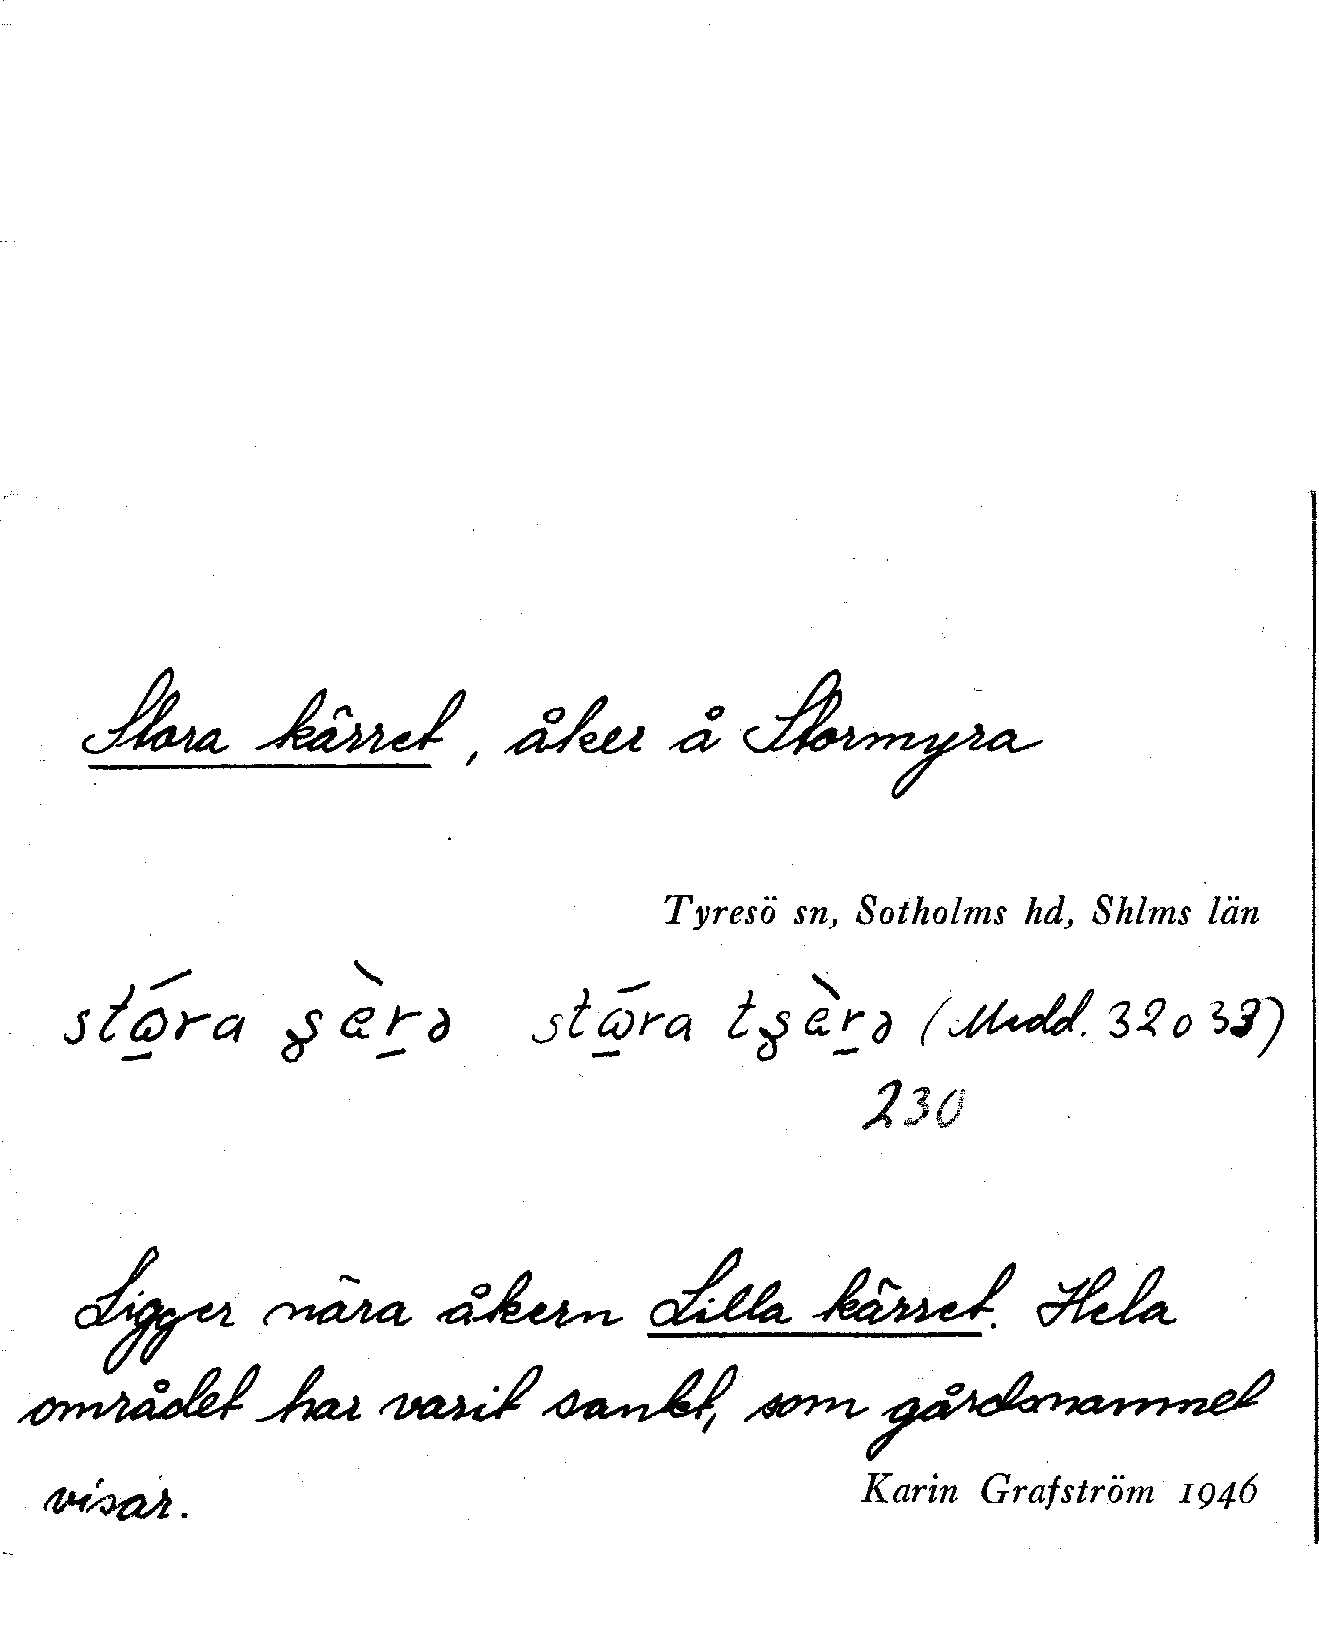 Stora kärret, åker å Stormyra
Tyresö sn, Sotholms hd, Shlms län
stώ̲ra ʂèr̲ə stώ̲ra tʂèr̲ə (Medd. 32 o 33)
230
Ligger nära åkern Lilla kärret. Hela
området har varit sankt, som gårdsnamnet
visar.
Karin Grafström 1946